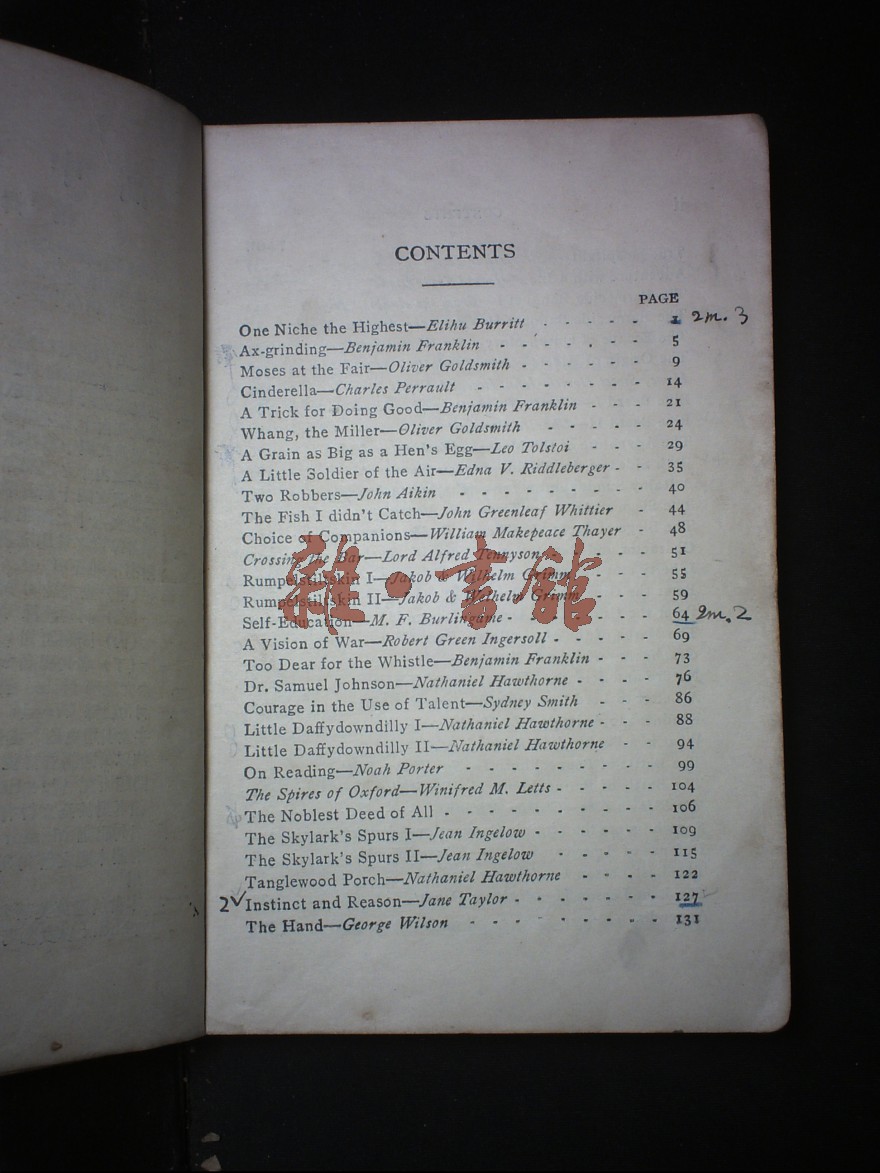 CONTENTS
PAGE
One Niche the Highest—Elihu Burritt - - - - - 1 2m. 3
Ax-grinding—Benjamin Franklin - - - - - - - 5
Moses at the Fair—Oliver Goldsmith - - - - - - 9
Cinderella—Charles Perrault - - - - - - - - 14
A Trick for Doing Good—Benjamin Franklin - - - 21
Whang, the Miller—Oliver Goldsmith - - - - - 24
A Grain as Big as a Hen's Egg—Leo Tolstoi - - - 29
A Little Soldier of the Air—Edna V. Riddleberger - - 35
Two Robbers—John Aikin - - - - - - - - - 40
The Fish I didn't Catch—John Greenleaf Whittier - 44
Choice of Companions—William Makepeace Thayer - 48
Crossing the Bar—Lord Alfred Tennyson - - - - 51
Rumpelstiltskin I—Jakob & Wilhelm Grimm - - - 55
Rumpelstiltskin II—Jakob & Wilhelm Grimm - - - 59
Self-Education—M. F. Burlingame - - - - - - - 64 2m. 2
A Vision of War—Robert Green Ingersoll - - - - - 69
Too Dear for the Whistle—Benjamin Franklin - - - 73
Dr. Samuel Johnson—Nathaniel Hawthorne - - - - 76
Courage in the Use of Talent—Sydney Smith - - - 86
Little Daffydowndilly I—Nathaniel Hawthorne - - - 88
Little Daffydowndilly II—Nathaniel Hawthorne - - 94
On Reading—Noah Porter - - - - - - - - - 99
The Spires of Oxford—Winifred M. Letts - - - - - 104
The Noblest Deed of All - - - - - - - - - - 106
The Skylark's Spurs I—Jean Ingelow - - - - - - 109
The Skylark's Spurs II—Jean Ingelow - - - - - 115
Tanglewood Porch—Nathaniel Hawthorne - - - - 122
2✓ Instinct and Reason—Jane Taylor - - - - - - - 127
The Hand—George Wilson - - - - - - - - - 131
雜·書館